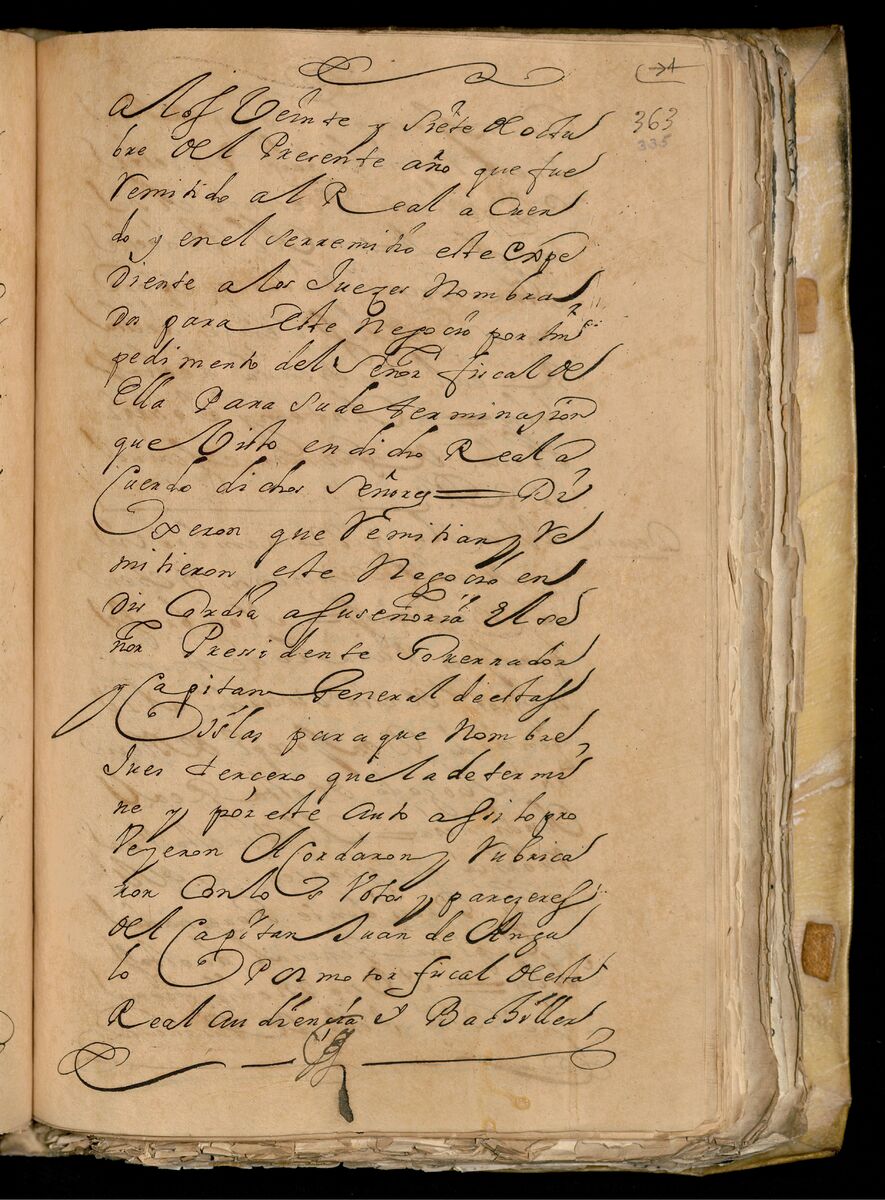 363
335
a los Veinte y siete de octu
bre del Presente año que fue
Remitido al Real a Cuer
do y en el se rremitio este Expe
diente a los Juezes Nombra
dos para Este Negocio por Im
pedimento del Señor fiscal de
Ella Para su determinazion
que Visto en dicho Real a
Cuerdo dichos Señores = Di
xeron que Remitian y Re
mitieron este Negocio en
Dis Cordia a su señoria El se
ñor Presidente Gobernador
y Capitan General de estas
Yslas para que Nombre
Jues tercero que la determi
ne y por este auto assi lo pro
Veyeron A Cordaron y Rubrica
ron Con los Votos y parezeres
del Capitan Juan de Angu
lo Promotor fiscal de esta
Real audiencia y Bachiller